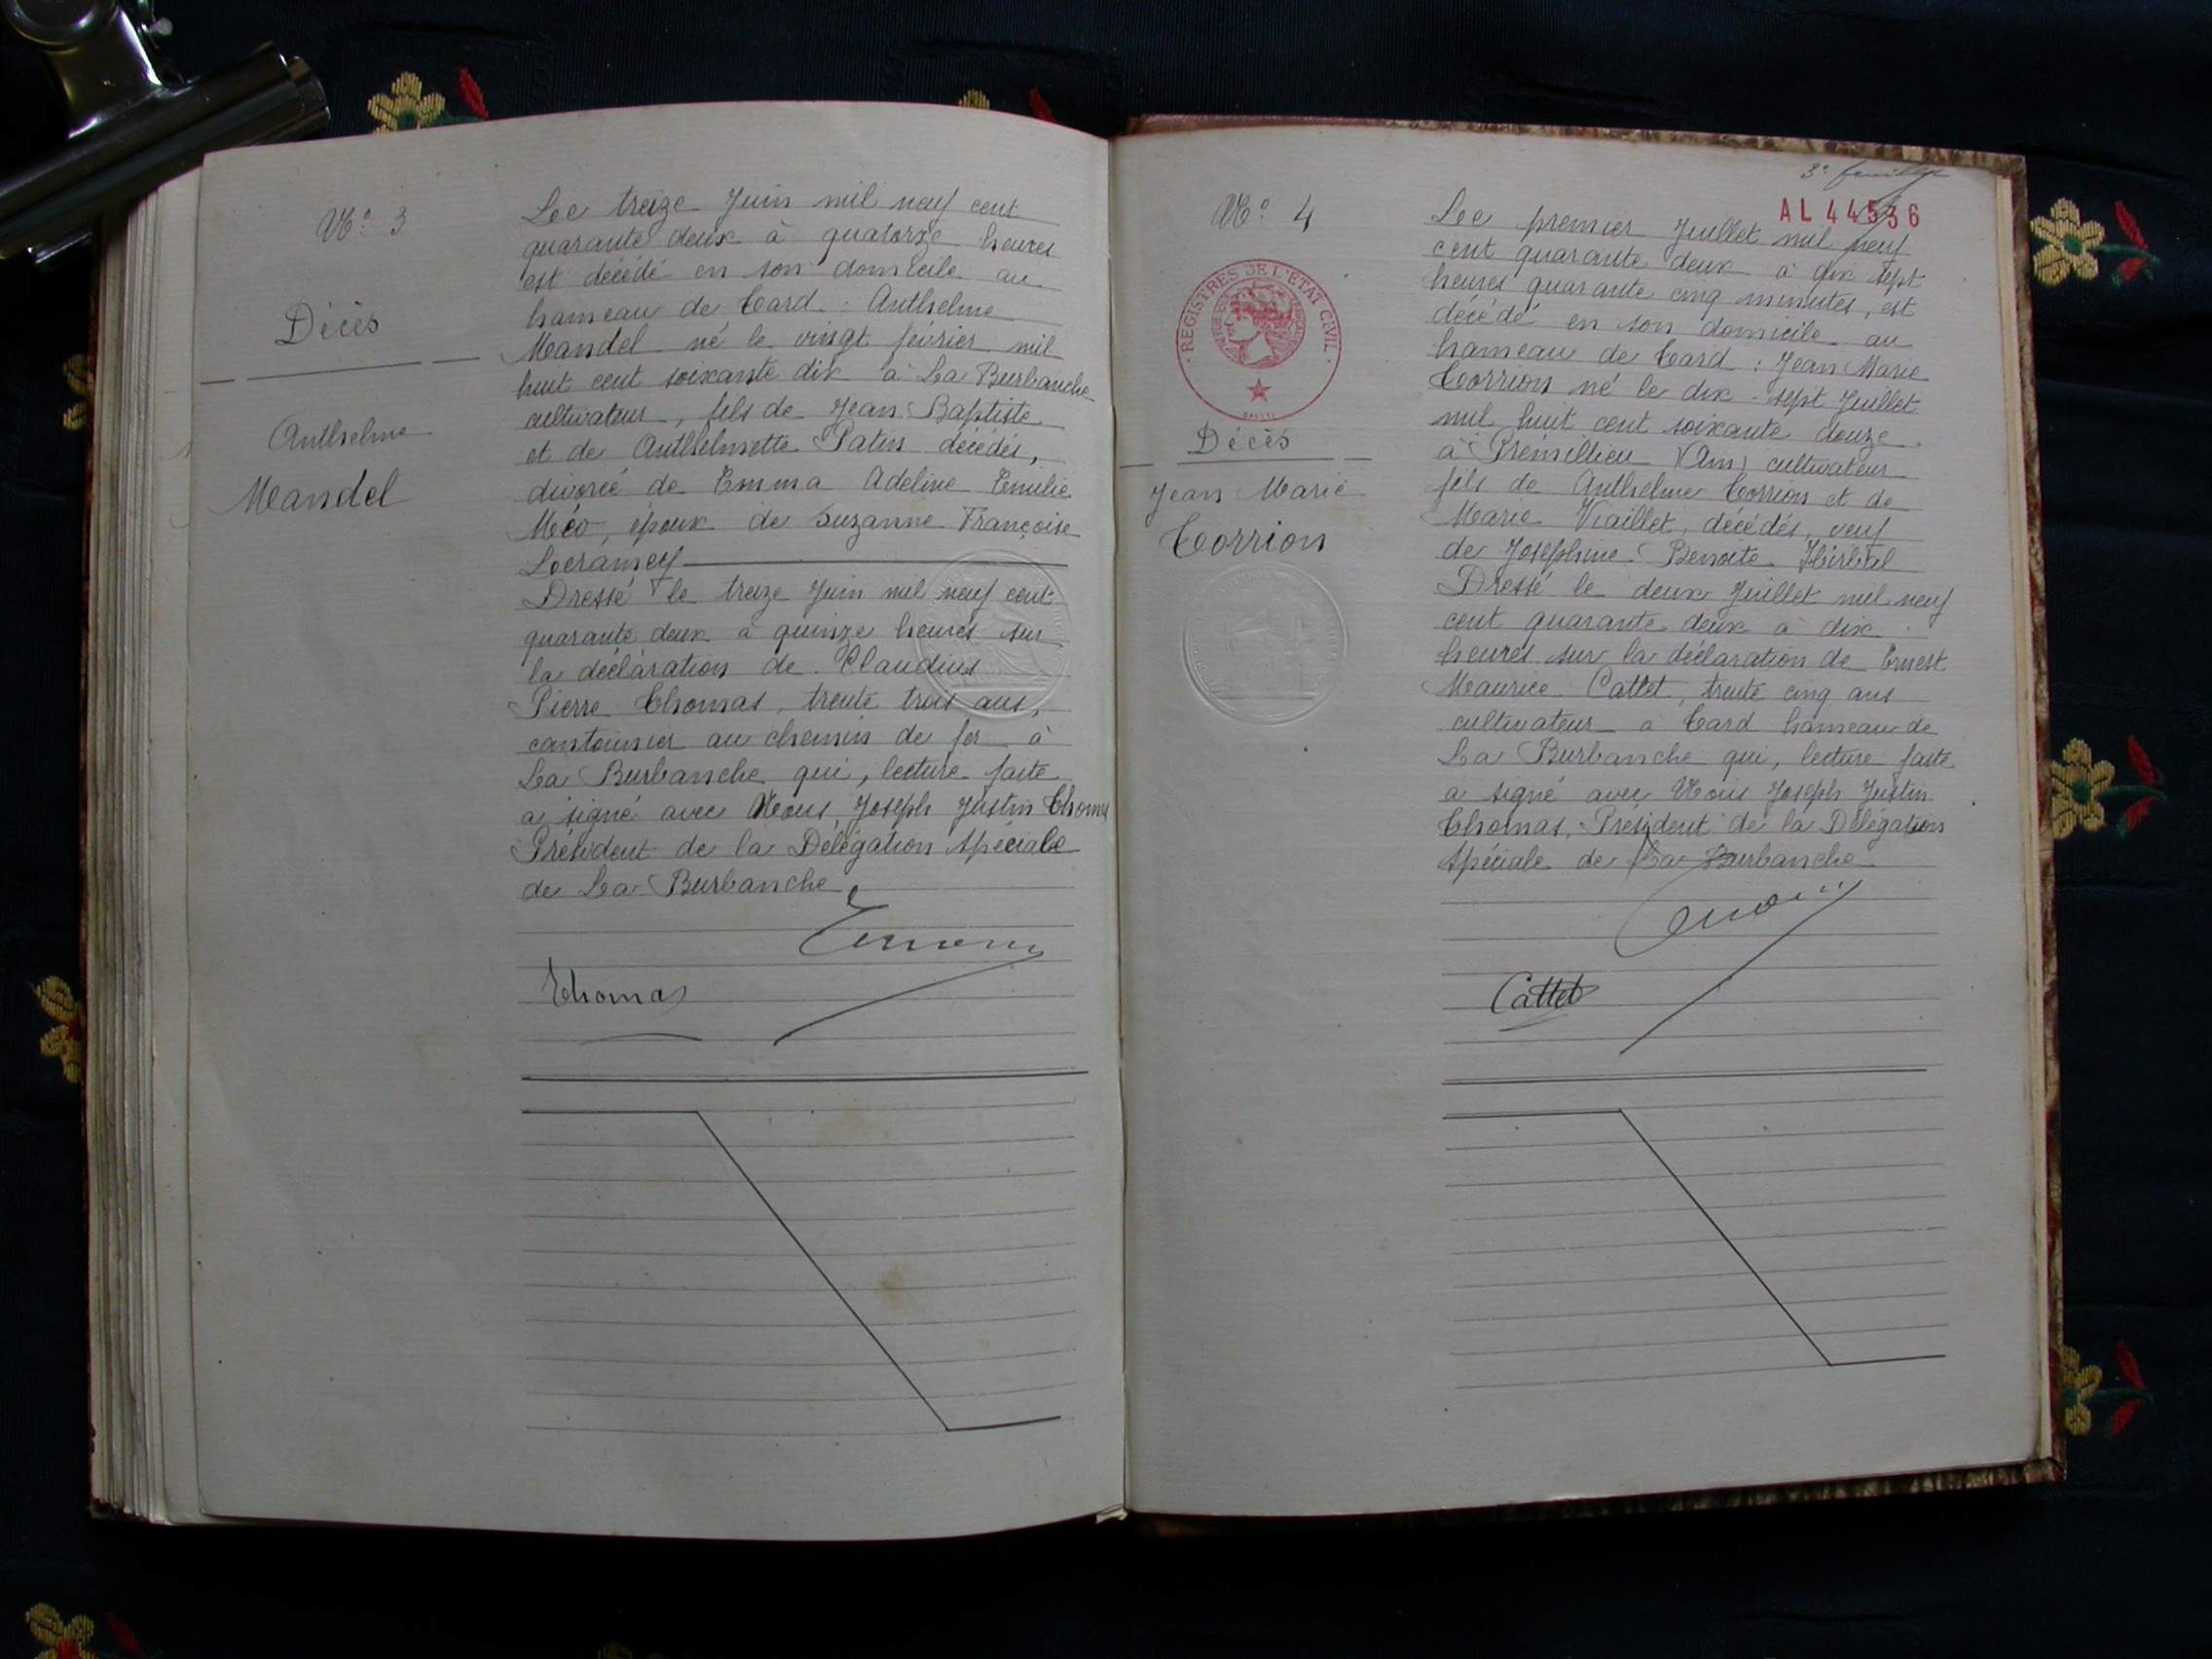 N° 3
Décès
Anthelme
Mandel
Le treize Juin mil neuf cent
quarante deux à quatorze heures
est décédé en son domicile au
hameau de Tard : Anthelme
Mandel né le vingt février mil
huit cent soixante dix à La Burbanche
cultivateur, fils de Jean Baptiste
et de Anthelmette Patin décédés,
divorcé de Emma Adeline Emilie
Méo, époux de Suzanne Françoise
Dressé le treize Juin mil neuf cent
quarante deux à quinze heures sur
la déclaration de Claudius
Pierre Thomas, trente trois ans,
cantonnier au chemin de fer à
La Burbanche qui, lecture faite
a signé avec Nous, Joseph Justin Thomas
Président de la Délégation Spéciale
de La Burbanche
Thomas
3e feuillet
AL 44536
N° 4
REGISTRES DE L'ETAT CIVIL
Décès
Jean Marie
Torrion
Le premier Juillet mil neuf
cent quarante deux à dix sept
heures quarante cinq minutes, est
décédé en son domicile au
hameau de Tard : Jean Marie
Torrion né le dix-sept Juillet
mil huit cent soixante douze
à Prémillieu (Ain) cultivateur
fils de Anthelme Torrion et de
Marie Viaillet, décédés, veuf
de Joséphine Benoite
Dressé le deux Juillet mil neuf
cent quarante deux à dix
heures sur la déclaration de Ernest
Maurice Cattet, trente cinq ans
cultivateur à Tard hameau de
La Burbanche qui, lecture faite
a signé avec Nous Joseph Justin
Thomas, Président de la Délégation
Spéciale de La Burbanche
Cattet